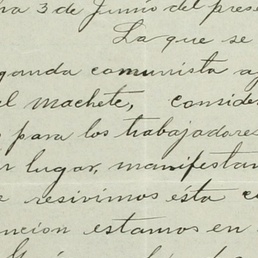 3 de Junio del prese
La que se
ganda comunista a
el machete, conside
para los trabajadores
r lugar, manifestan
resivimos ésta c
nción estamos en